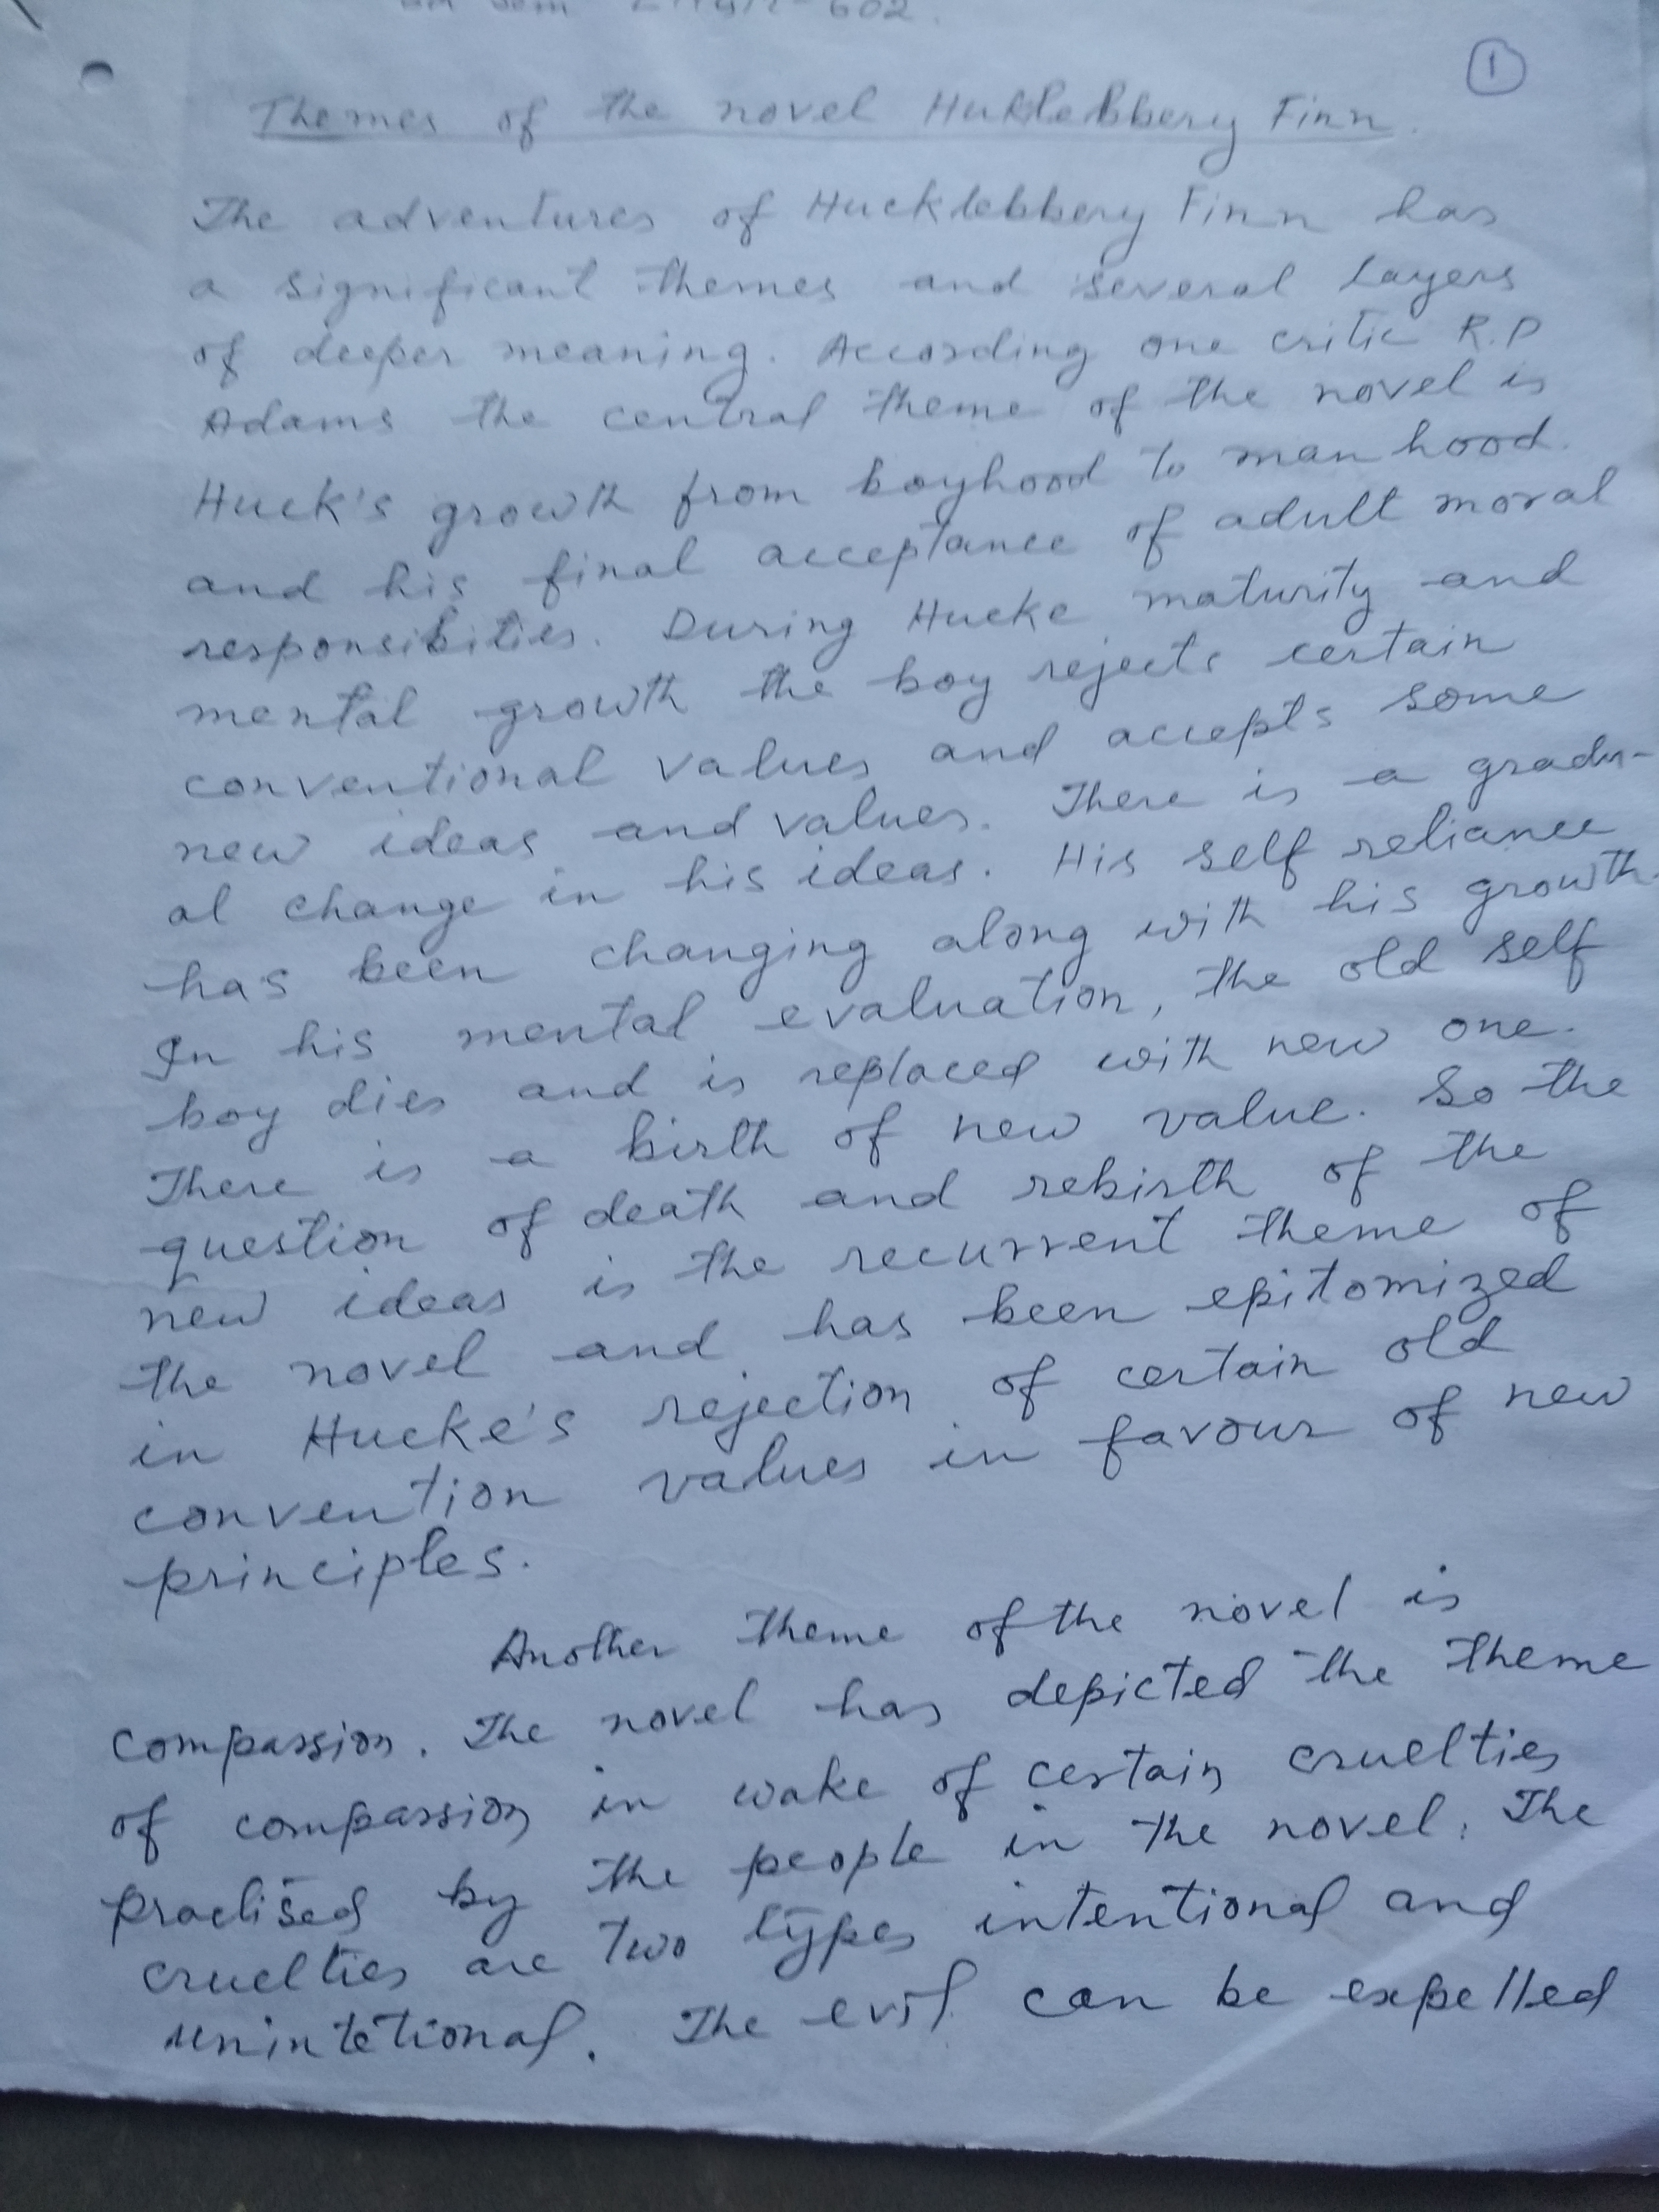 Sem 602.
1
Themes of the novel HukleBbbery Finn.
The adventures of Hucklebbery Finn has
a significant themes and several layers
of deeper meaning. According one critic R.P
Adams the central theme of the novel is
Huck's growth from boyhood to man hood.
and his final acceptance of adult moral
responsibities. During Hucke maturity and
mental growth the boy rejects certain
conventional values and accepts some
new ideas and values. There is a gradu-
al change in his ideas. His self reliance
has been changing along with his growth.
In his mental evaluation, the old self
boy dies and is replaced with new one.
There is a birth of new value. So the
question of death and rebirth of the
new ideas is the recurrent theme of
the novel and has been epitomized
in Hucke's rejection of certain old
convention values in favour of new
principles.
Another theme of the novel is
compassion. The novel has depicted the theme
of compassion in wake of certain cruelties
practised by the people in the novel. The
cruelties are two types intentional and
unintetional. The evil can be expelled